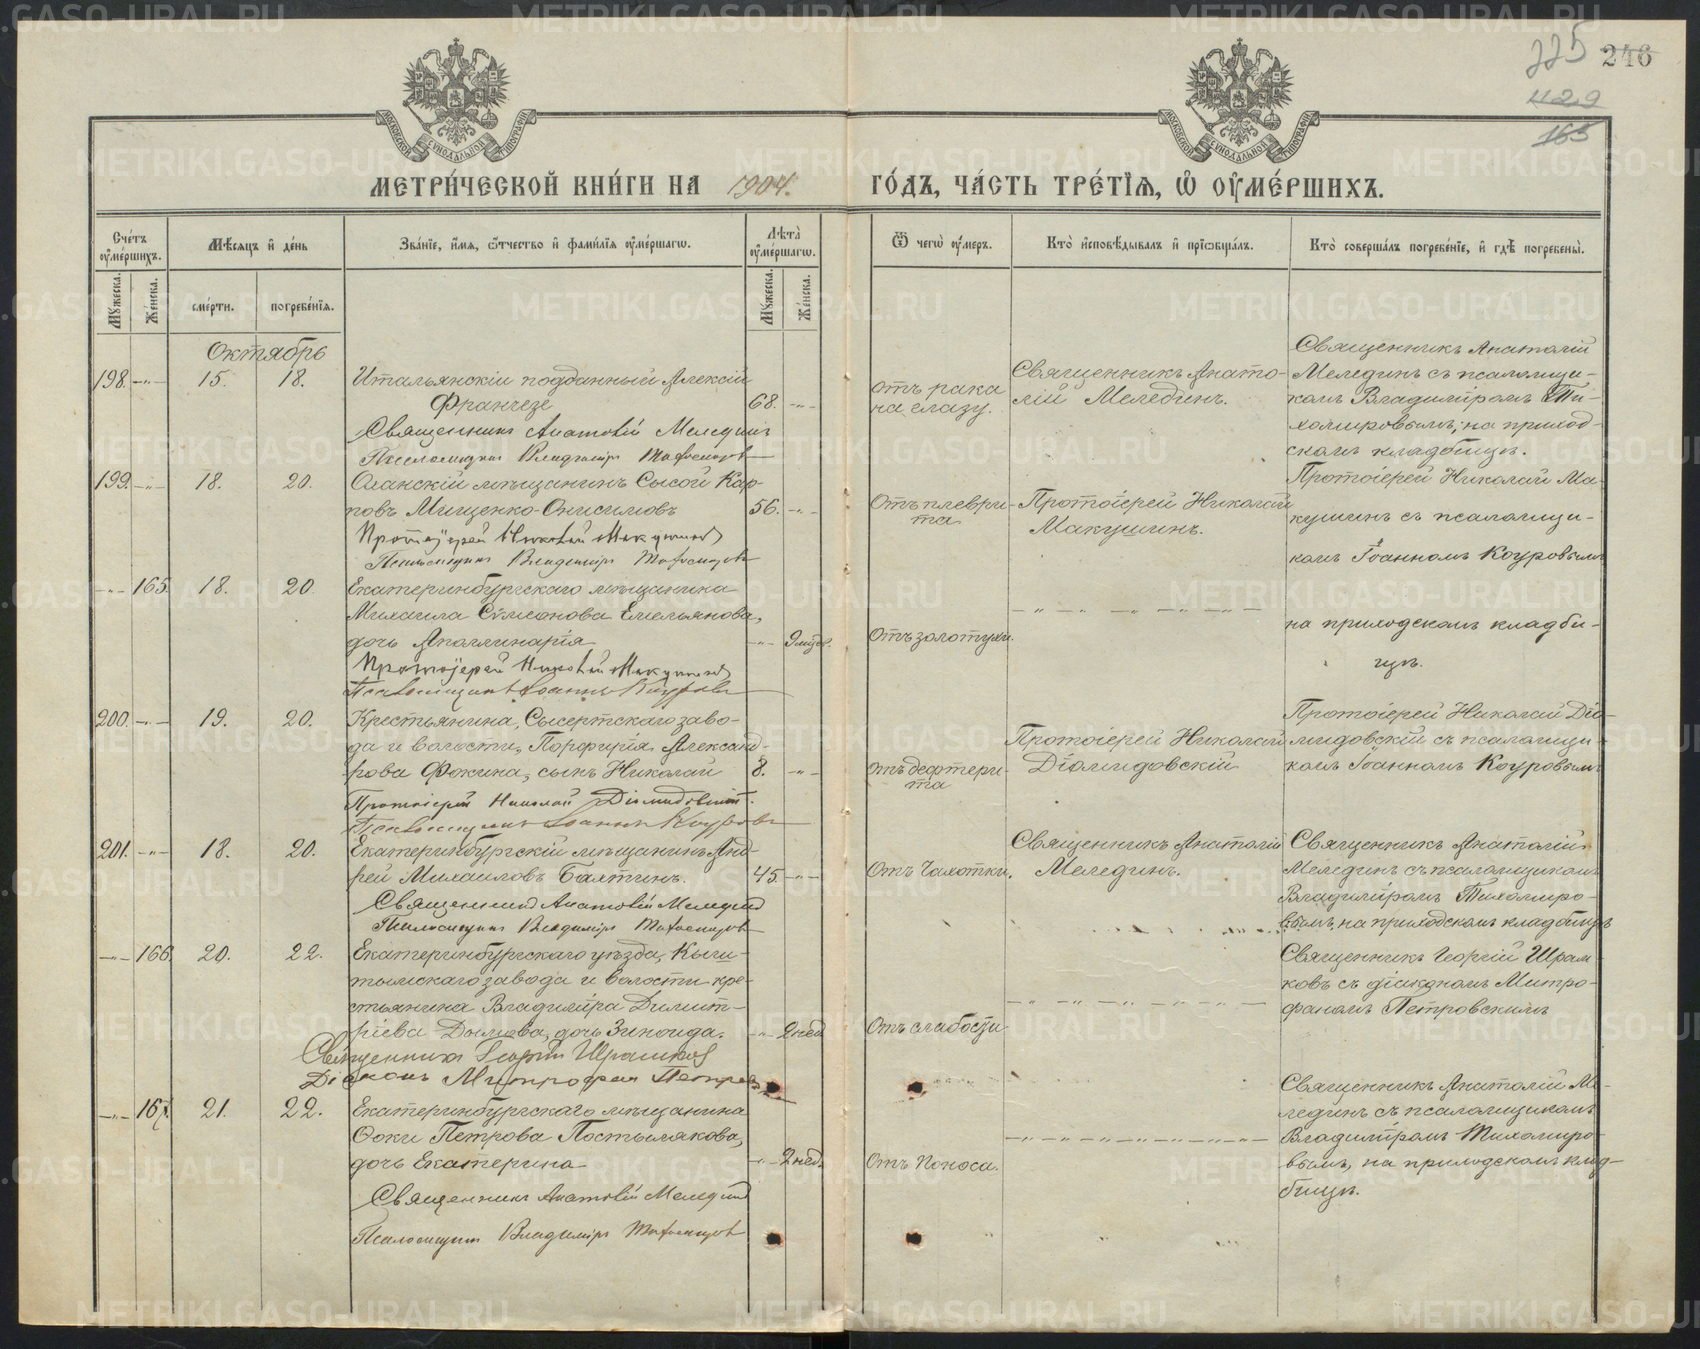 225 246
429
165
МЕТРИ́ЧЕСКОЙ КНИ́ГИ НА 1904. ГО́ДЪ, ЧА́СТЬ ТРЕ́ТІѦ, Ѡ҆ ОУ҆МЕ́РШИХЪ.
Сче́тъ оу҆ме́ршихъ.
Мꙋ́жеска.
Же́нска.
Мѣ́сѧцъ и҆ де́нь
сме́рти.
погребе́нїѧ.
Зва́нїе, и҆́мѧ, ѻ҆́тчество и҆ фами́лїѧ оу҆ме́ршагѡ.
Лѣ̀та̀ оу҆ме́ршагѡ.
Мꙋ́жеска.
Же́нска.
Ѿ чегѡ̀ оу҆́меръ.
Кто̀ и҆сповѣ́дывалъ и҆ прїѡбща́лъ.
Кто̀ соверша́лъ погребе́нїе, и҆ гдѣ̀ погребены̀.
Октябрь
198. -„- 15. 18.
Итальянскій подданный Алексій
Франчезе
68. -„-
Священникъ Анатолій Мелединъ
Псаломщикъ Владиміръ Тихомировъ
отъ рака
на глазу.
Священникъ Анато-
лій Мелединъ.
Священникъ Анатолій
Мелединъ съ псаломщи-
комъ Владиміромъ Ти-
хомировымъ, на приход-
скомъ кладбищѣ.
199. -„- 18. 20.
Оханскій мѣщанинъ Сысой Кар-
повъ Мищенко-Онисимовъ
56. -„-
Протоіерей Николай Макушинъ
Псаломщикъ Владиміръ Тихомировъ
Отъ плеври-
та
Протоіерей Николай
Макушинъ.
Протоіерей Николай Ма-
кушинъ съ псаломщи-
комъ Іоанномъ Коуровымъ
-„- 165. 18. 20.
Екатеринбургскаго мѣщанина
Михаила Сѵмеонова Емельянова,
дочь Аполлинарія
-„- 9 мѣс.
Протоіерей Николай Макушинъ
Псаломщикъ Іоаннъ Коуровъ
Отъ золотухи.
на приходскомъ кладби-
щѣ.
200. -„- 19. 20.
Крестьянина, Сысертскаго заво-
да и волости, Порфирія Александ-
рова Фокина, сынъ Николай
8. -„-
Протоіерей Николай Діомидовскій.
Псаломщикъ Іоаннъ Коуровъ
отъ дефтери-
та
Протоіерей Николай
Діомидовскій
Протоіерей Николай Діо-
мидовскій съ псаломщи-
комъ Іоанномъ Коуровымъ
201. -„- 18. 20.
Екатеринбургскій мѣщанинъ Анд-
рей Михаиловъ Балтинъ.
45. -„-
Священникъ Анатолій Мелединъ
Псаломщикъ Владиміръ Тихомировъ
Отъ Чахотки.
Священникъ Анатолій
Мелединъ.
Священникъ Анатолій
Мелединъ съ псаломщикомъ
Владиміромъ Тихомиро-
вымъ, на приходскомъ кладбищѣ
-„- 166. 20. 22.
Екатеринбургскаго уѣзда, Кыш-
тымскаго завода и волости кре-
стьянина Владиміра Димит-
ріева Дылдова, дочь Зиноида.
-„- 2 нед.
Священникъ Георгій Шрамковъ
Діаконъ Митрофан Петров
Отъ слабости
Священникъ Георгій Шрам-
ковъ съ діакономъ Митро-
фаномъ Петровскимъ
-„- 167. 21. 22.
Екатеринбургскаго мѣщанина
Ѳоки Петрова Постылякова,
дочь Екатерина
-„- 2 нед.
Священникъ Анатолій Мелединъ
Псаломщикъ Владиміръ Тихомировъ
Отъ поноса.
Священникъ Анатолій Ме-
лединъ съ псаломщикомъ
Владиміромъ Тихомиро-
вымъ, на приходскомъ клад-
бищѣ.
METRIKI.GASO-URAL.RU